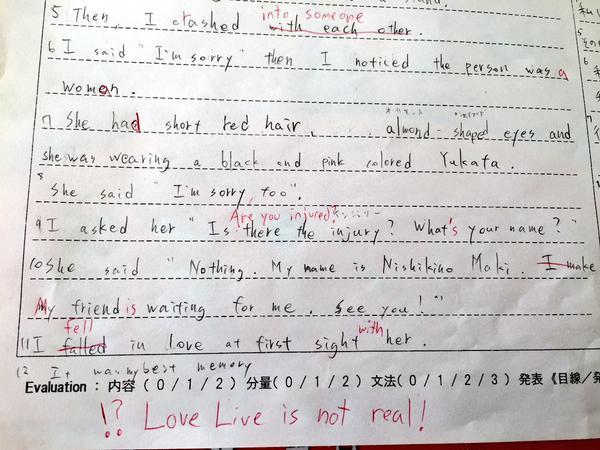 into someone
5 Then, I crashed with each other.
6 I said "I'm sorry" then I noticed the person was a
woman.
7 She had short red hair, almond-shaped eyes and
she was wearing a black and pink colored Yukata.
8
She said "I'm sorry, too".
Are you injured?
9 I asked her "Is there the injury? What's your name?"
10 She said "Nothing. My name is Nishikino Maki. I make
My friend is waiting for me. See you!"
fell with
11 I falled in love at first sight her.
12 It was my best memory
Evaluation : 内容 ( 0 / 1 / 2 ) 分量( 0 / 1 / 2 ) 文法( 0 / 1 / 2 / 3 ) 発表《目線/発
!? Love Live is not real!